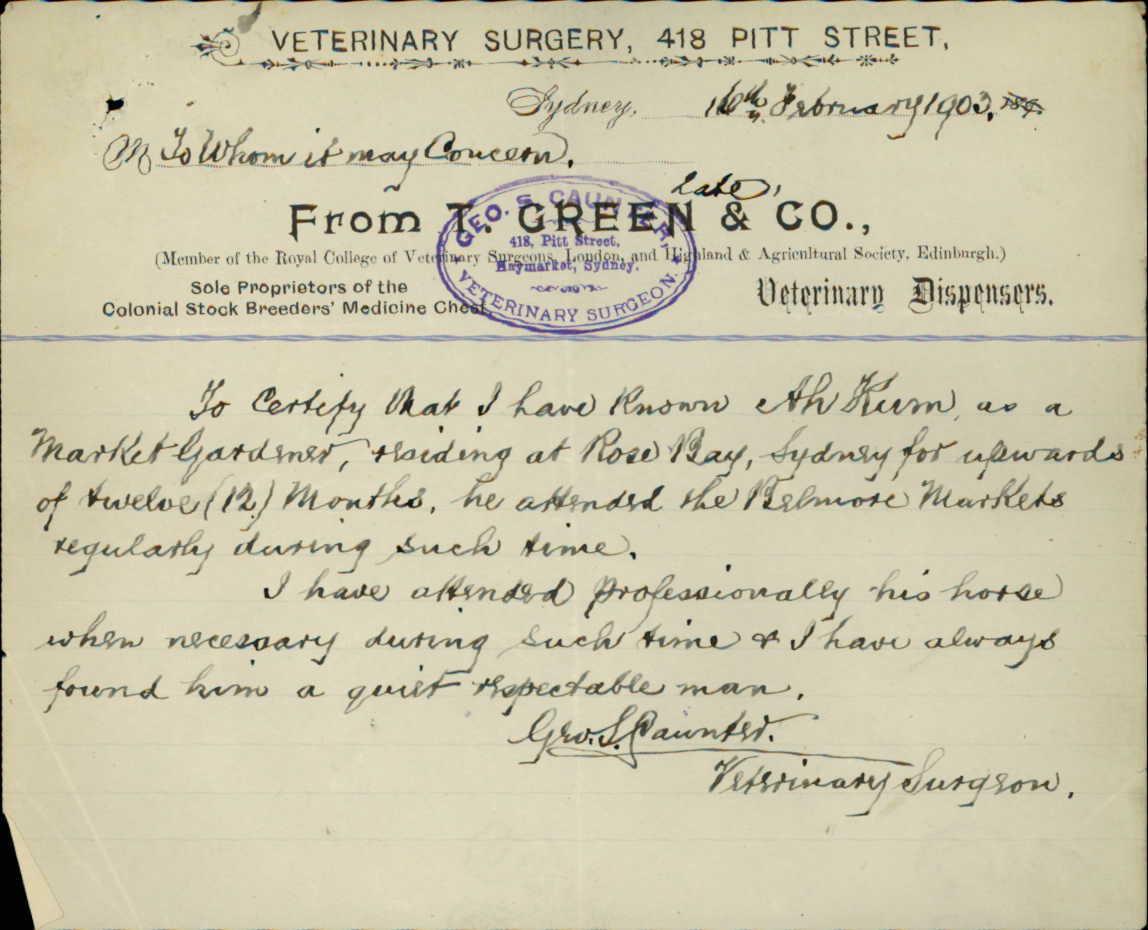 VETERINARY SURGERY, 418 PITT STREET,
Sydney, 16th February 1903, 189
M To Whom it may Concern,
late
From T. GREEN & CO.,
GEO. S. CAUNTER,
418, Pitt Street,
Haymarket, Sydney.
VETERINARY SURGEON.
(Member of the Royal College of Veterinary Surgeons, London, and Highland & Agricultural Society, Edinburgh.)
Sole Proprietors of the
Colonial Stock Breeders' Medicine Chest.
Veterinary Dispensers.
To Certify that I have Known Ah Kum, as a
Market Gardener, residing at Rose Bay, Sydney for upwards
of twelve (12) Months, he attended the Belmore Markets
regularly during such time.
I have attended professionally his horse
when necessary during such time & I have always
found him a quiet respectable man.
Geo. S. Caunter.
Veterinary Surgeon.